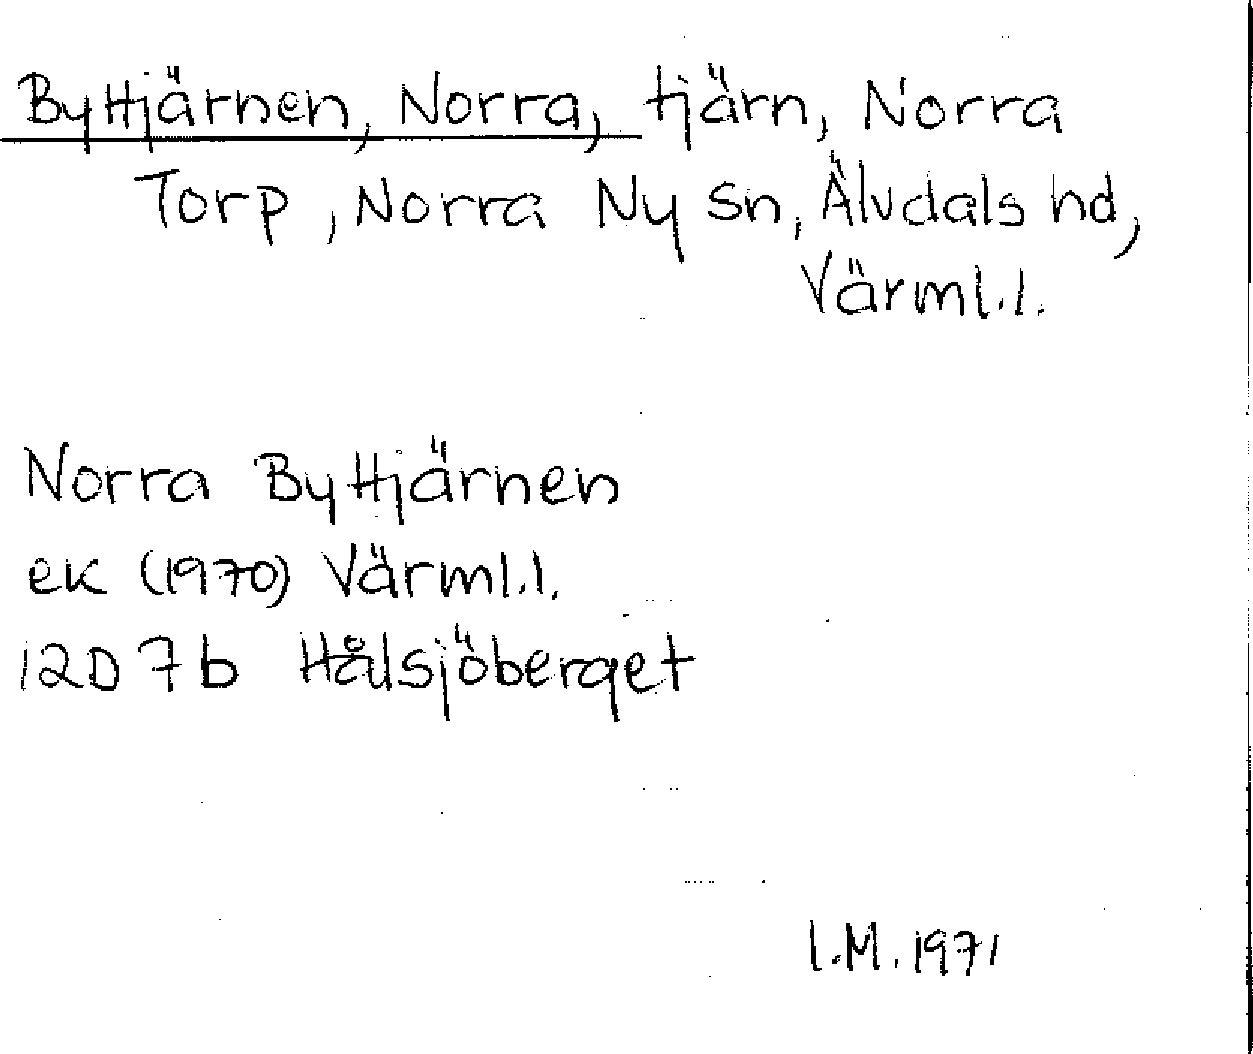 Byttjärnen, Norra, tjärn, Norra
Torp, Norra Ny sn, Älvdals hd,
Värml.l.
Norra Byttjärnen
ek (1970) Värml.l.
12D 7b Hålsjöberget
I.M. 1971